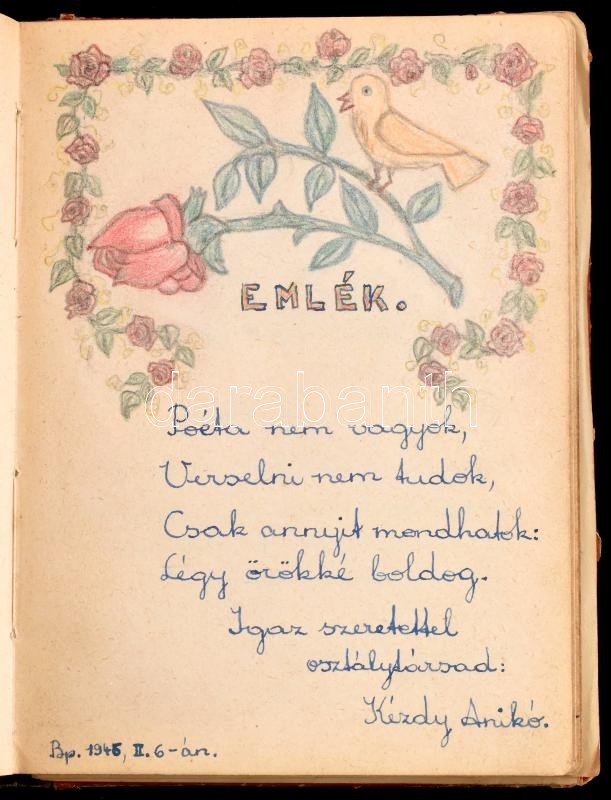 EMLÉK.
darabanth
Poéta nem vagyok,
Verselni nem tudok,
Csak annyit mondhatok:
Légy örökké boldog.
Igaz szeretettel
osztálytársad:
Kézdy Anikó.
Bp. 1945, II. 6-án.